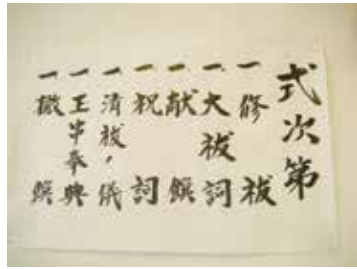 式次第
一 修祓
一 大祓詞
一 献饌
一 祝詞
一 清祓ノ儀
一 玉串奉奠
一 撤饌